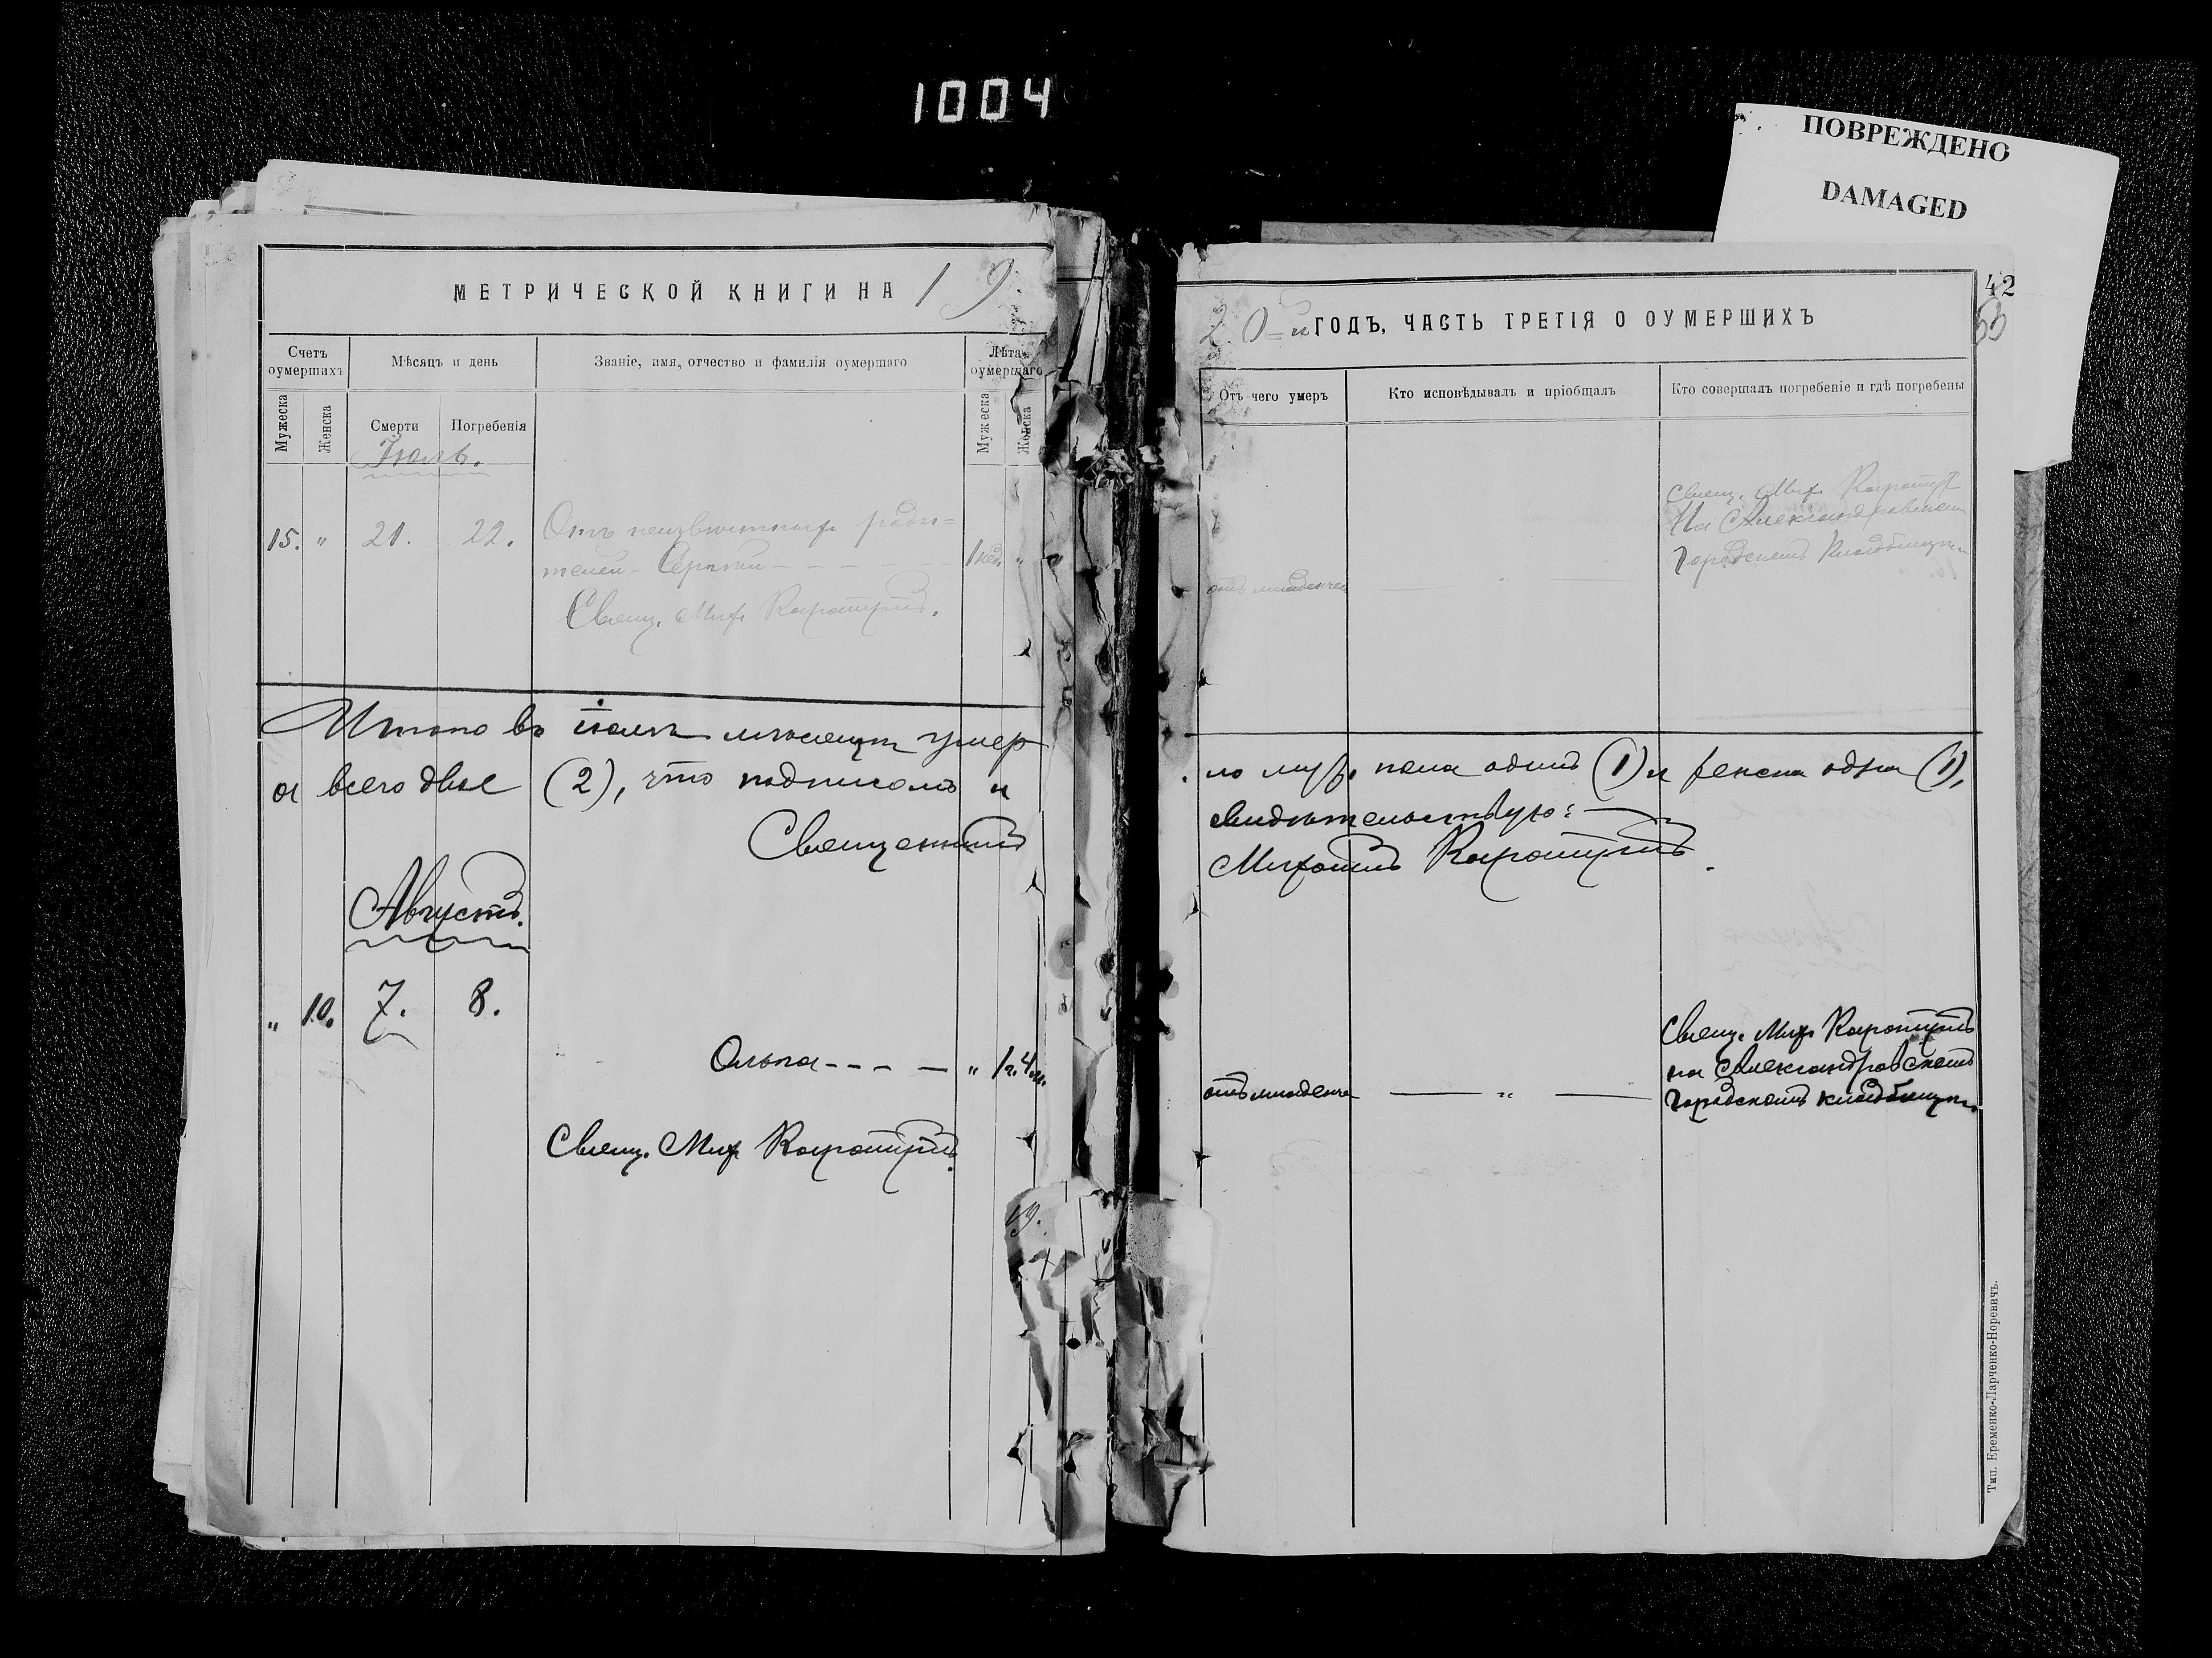 1004
ПОВРЕЖДЕНО
DAMAGED
МЕТРИЧЕСКОЙ КНИГИ НА 19
Счетъ оумершихъ
Мѣсяцъ и день
Званіе, имя, отчество и фамилія оумершаго
Лѣта оумершаго
Мужеска
Женска
Смерти
Погребенія
Мужеска
Женска
Іюль.
15. " 21. 22. Отъ неизвѣстныхъ роди-
телей - Сергѣй - - - - 1 нед. "
Свящ. Мих.
Итого въ іюлѣ мѣсяцѣ умер
а всего двое (2), что подписомъ и
Священникъ
Августъ.
" 10. 7. 8.
Ольга - - - - " 1г. 4м.
Свящ. Мих.
19.
42
53
20-й ГОДЪ, ЧАСТЬ ТРЕТІЯ О ОУМЕРШИХЪ
Отъ чего умеръ
Кто исповѣдывалъ и пріобщалъ
Кто совершалъ погребеніе и гдѣ погребены
Свящ. Мих.
На Александровскомъ
Городскомъ кладбищѣ.
отъ младенче
ло муж. пола одинъ (1) и женска одна (1),
свидѣтельствую:
Михаилъ
Свящ. Мих.
на Александровскомъ
отъ младенче " Городскомъ кладбищѣ.
Тип. Еременко-Ларченко-Норевичъ.